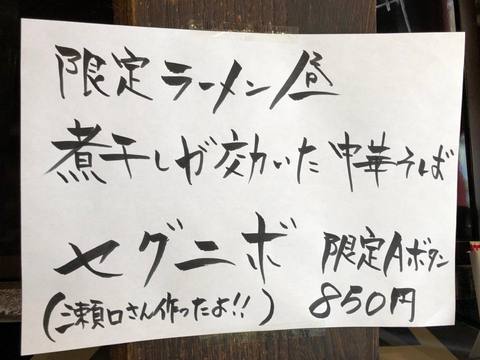 限定ラーメン昼
煮干しが効いた中華そば
セグニボ 限定Aボタン
(瀬口さん作ったよ!!) 850円